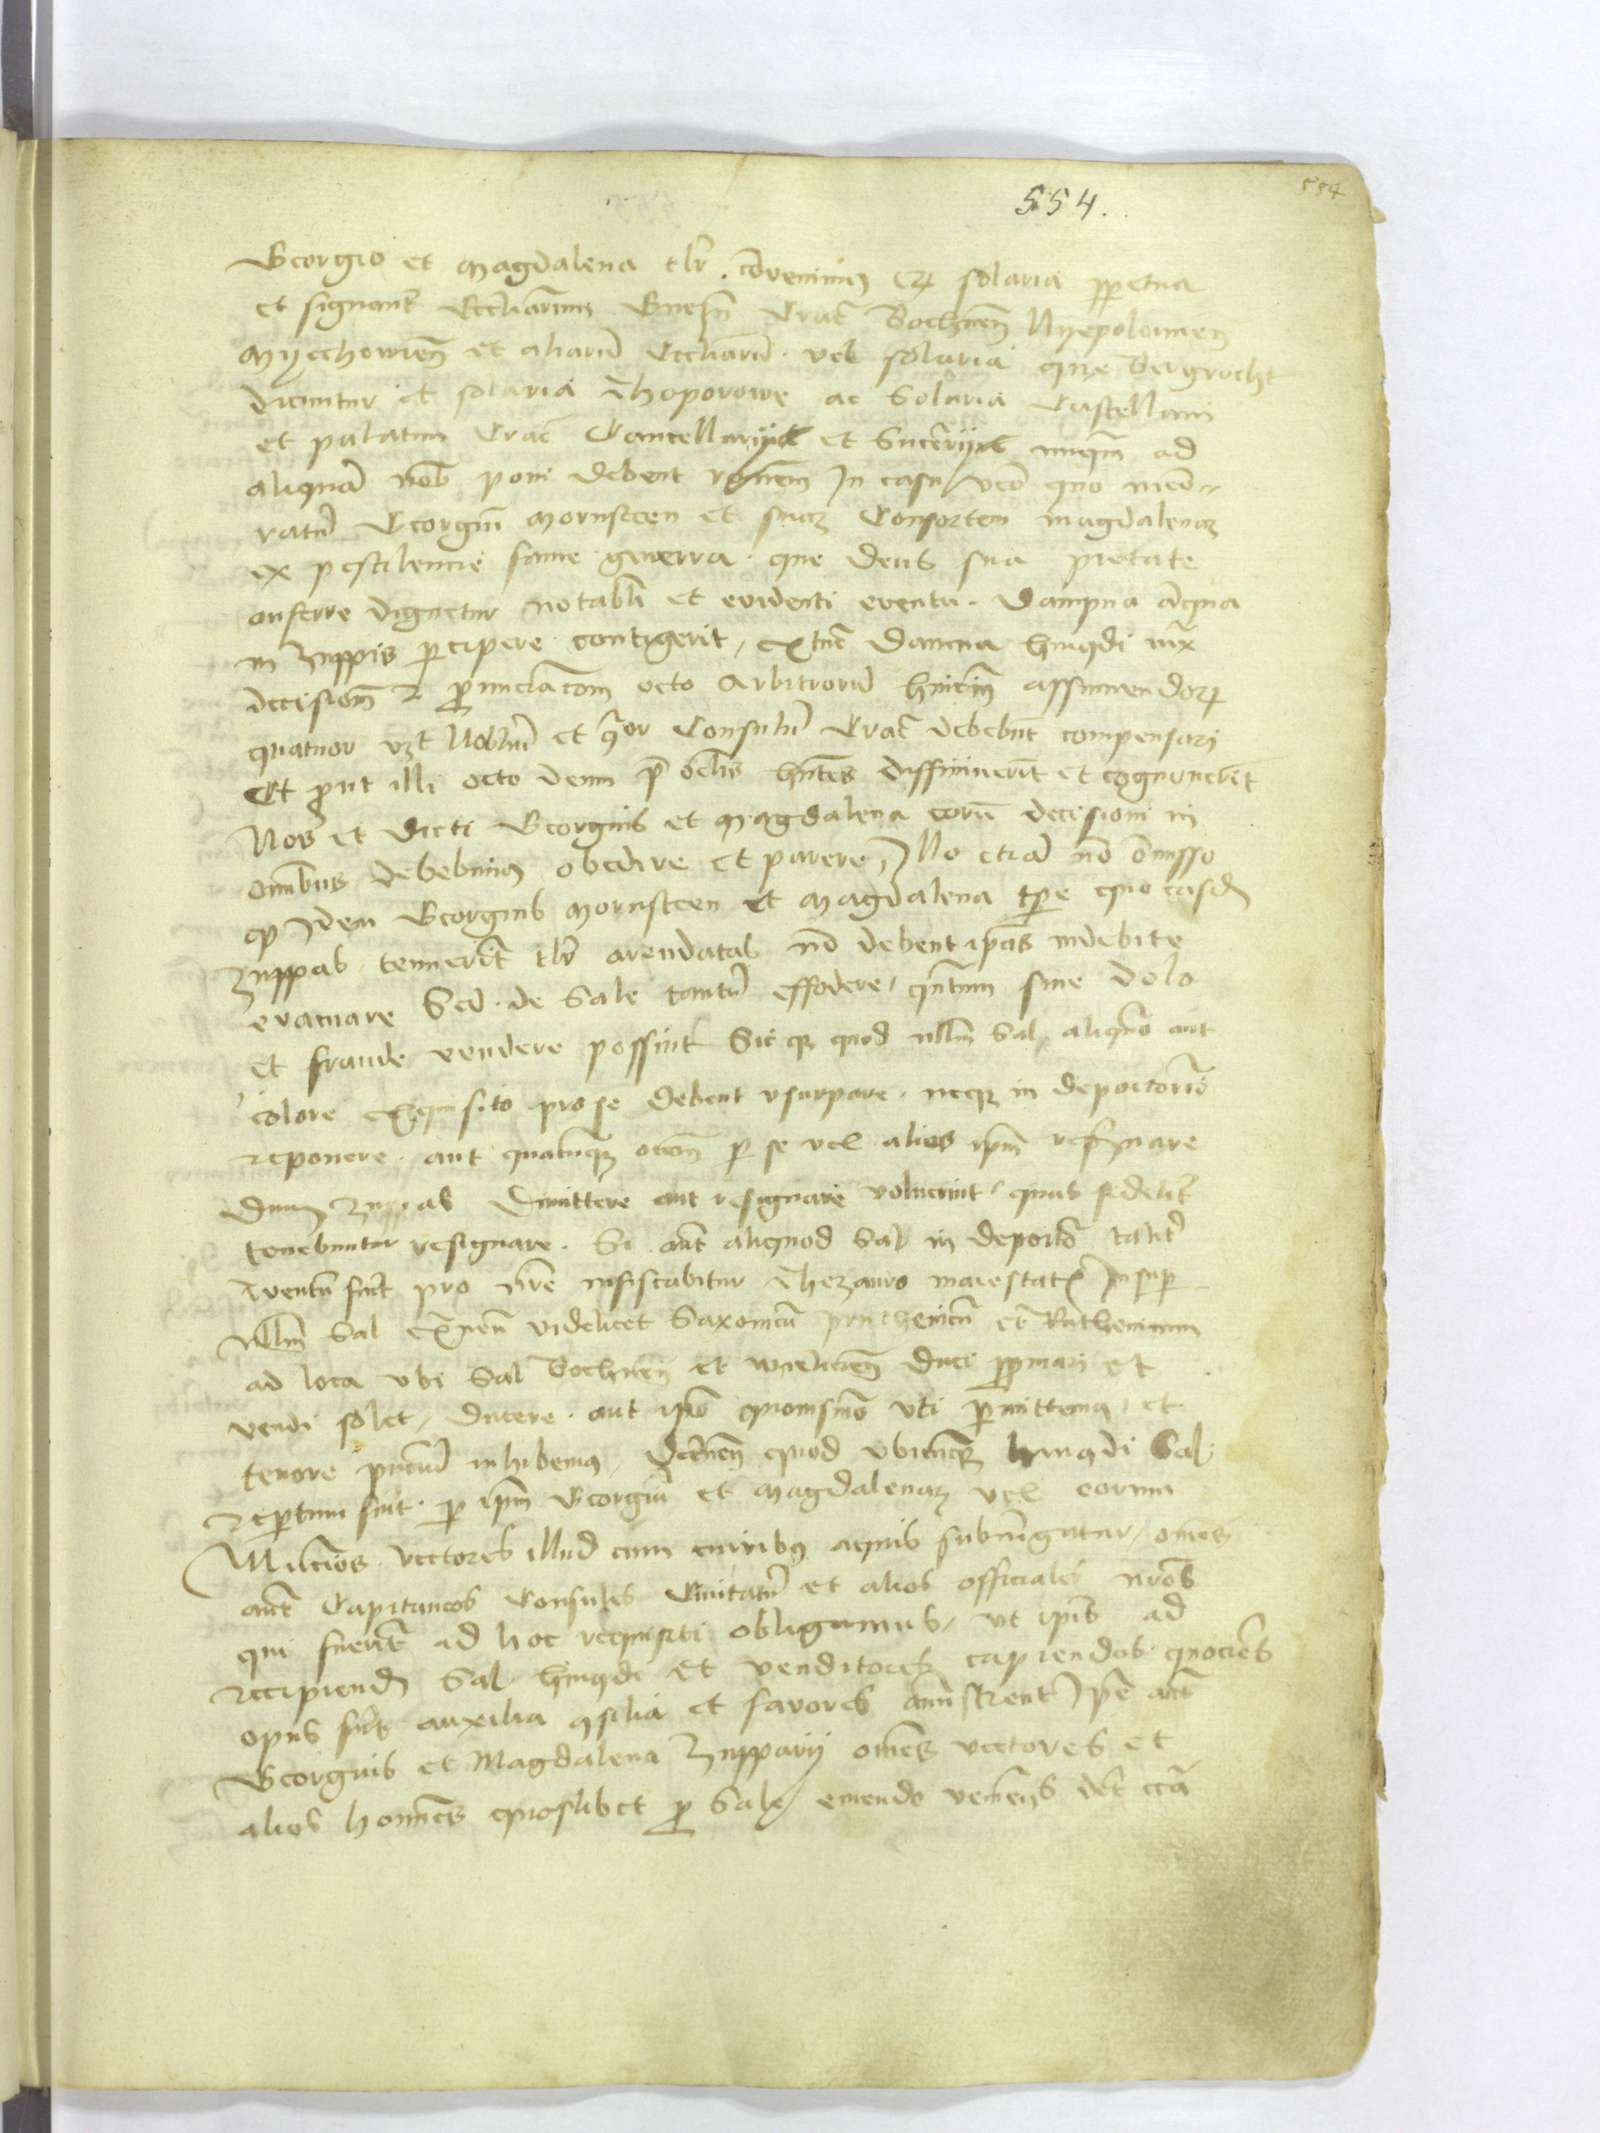 554.
554
Georgio et Magdalena tlr convenimus Et solaria ppetua
et signant Eccliarum Gnesn Crac Bochnen Nyepolomen
Myechowien et aliaru Eccliaru vel solaria que Bergrecht
dicuntur et solaria Thoporowe ac Solaria Castellani
et palatini Crac Cancellarij et Succarij nuqm ad
aliqua nob poni debent ronem In casu vero quo
Georgiu Mornsteen et sua Consortem Magdalena
ex pestilencie fame gwerra que deus sua pietate
auferre dignetur notabli et evidenti eventu dampna aliqua
in Zuppis pcipere contigerit extuc damna huiqdi iux
decision et pnunctacom octo Arbitroru hincin assumendor
quatuor vzt Nobliu et qor Consulu Crac debebut compensari
Et put illi octo deum p oclis hntes diffinierit et cognoverit
Nos et dicti Georgius et Magdalena coru decisioni in
omibus debebimus obedire et parere Illo etia no omisso
q Idem Georgius Mornsteen et Magdalena tpe quo easd
Zuppas tenuerit tlr arendatas no debent ipas indebite
evacuare Sed de Sale tantu effodere qntum sine dolo
et fraude vendere possint Sic q quod nullm Sal aliquo aut
colore exquisito pro se debent vsurpare neq in depoitorio
reponere aut quacuq ocom p se vel alios ipm reservare
dum Zuppas dimittere aut resignare voluerint quas fidelit
tenebuntur resignare Si aut aliquod Sal in depoito talit
Inventu fuit pro nre infiscabitur Thezauro maiestatis Insup
nullm Sal extneu videlicet Saxonicu pruthenicu et Ruthenicum
ad loca vbi Sal Bochnen et wieliczen duci et
vendi solet ducere aut ipo quomismo vti pmittemus et
tenore pncium inhibemus decernen quod vbicunq huiqdi Sal
reptum fuit p ipm Georgiu et Magdalena vel eorum
vectores illud cum curribus aquis submgatur omes
aut Capitaneos Consules Civitatu et alios officiales nros
qui fuerit ad hoc requisiti obligamus vt ipis ad
recipiend Sal huiqdi et venditores capiendos quociens
opus fuit auxilia qsilia et favores amistrent Ipe aut
Georgius et Magdalena Zupparij omes vectores et
alios homies quoslibet p Sale emendo veniens